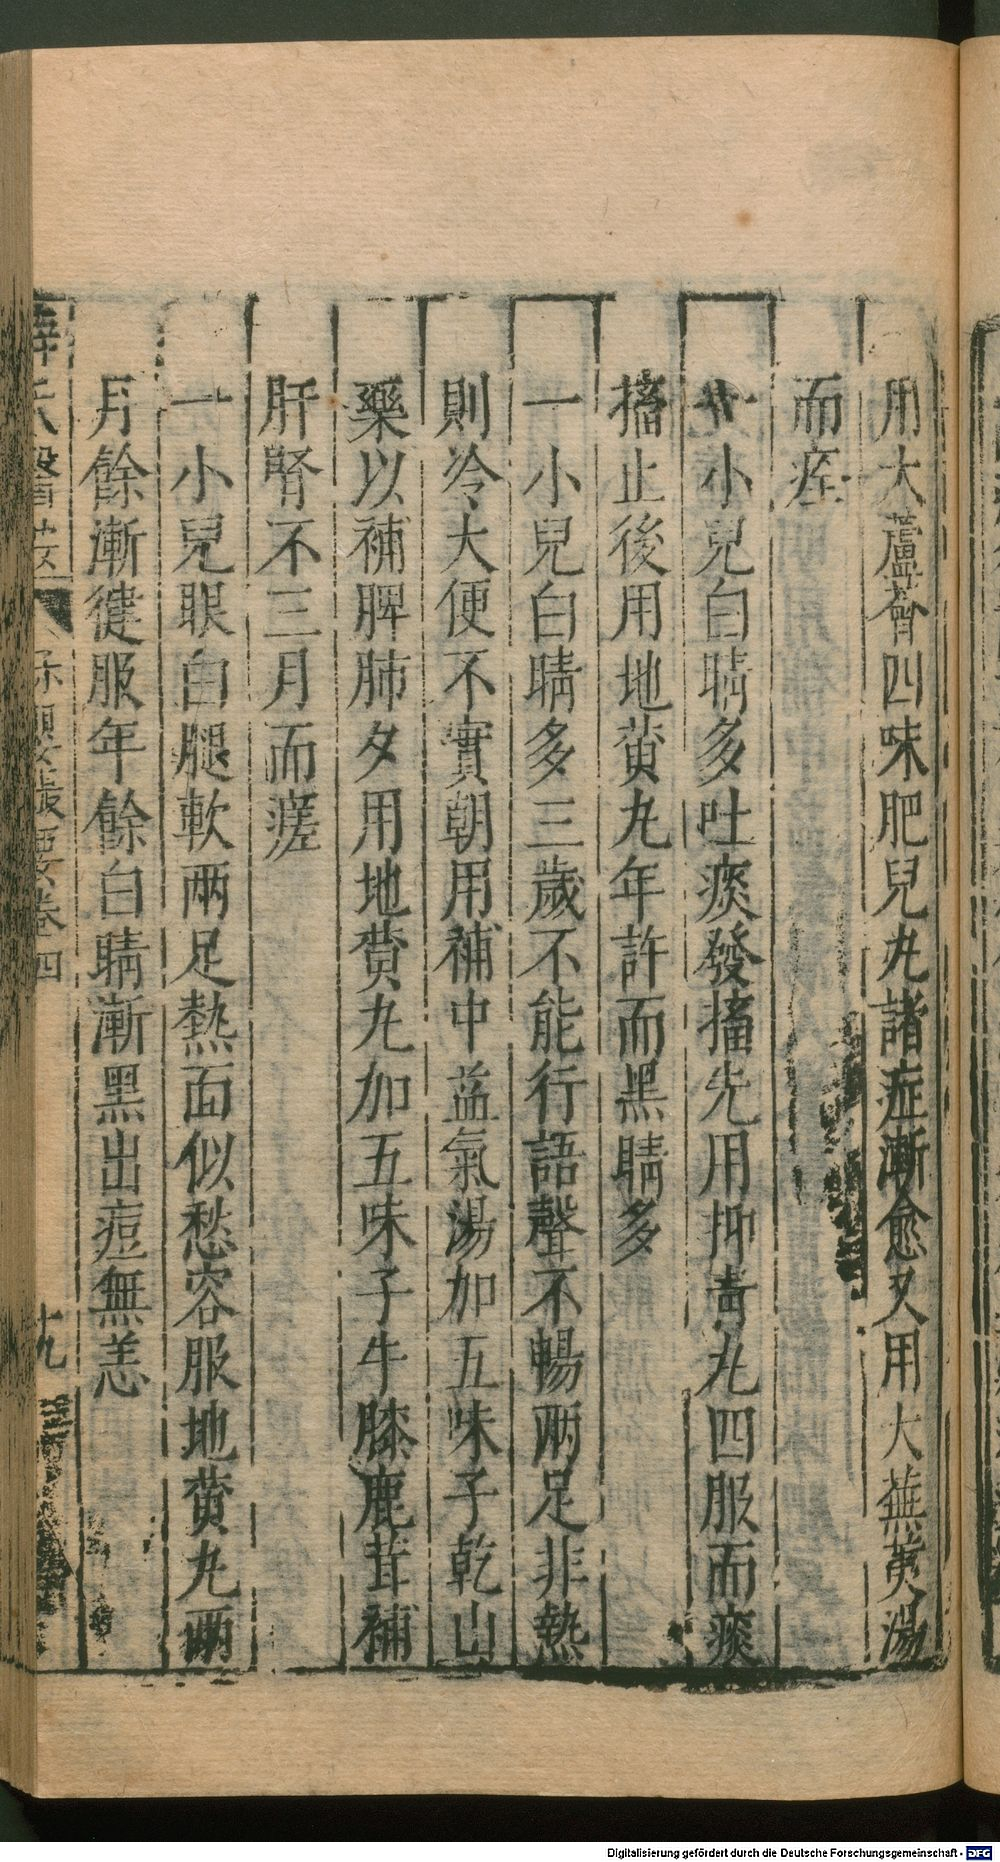 用大蘆薈四味肥兒丸諸症漸愈又用大蕪荑湯
而痊
一小兒白睛多吐痰發搐先用抑青丸四服而痰
搐止後用地黄丸年許而黑睛多
一小兒白睛多三歲不能行語聲不暢兩足非熱
則冷大便不實朝用補中益氣湯加五味子乾山
藥以補脾肺夕用地黄丸加五味子牛膝鹿茸補
肝腎不三月而瘥
一小兒眼白腿軟兩足熱面似愁容服地黄丸兩
月餘漸健服年餘白睛漸黑出痘無恙
薛氏醫 保嬰撮要卷四 十九
Digitalisierung gefördert durch die Deutsche Forschungsgemeinschaft - DFG